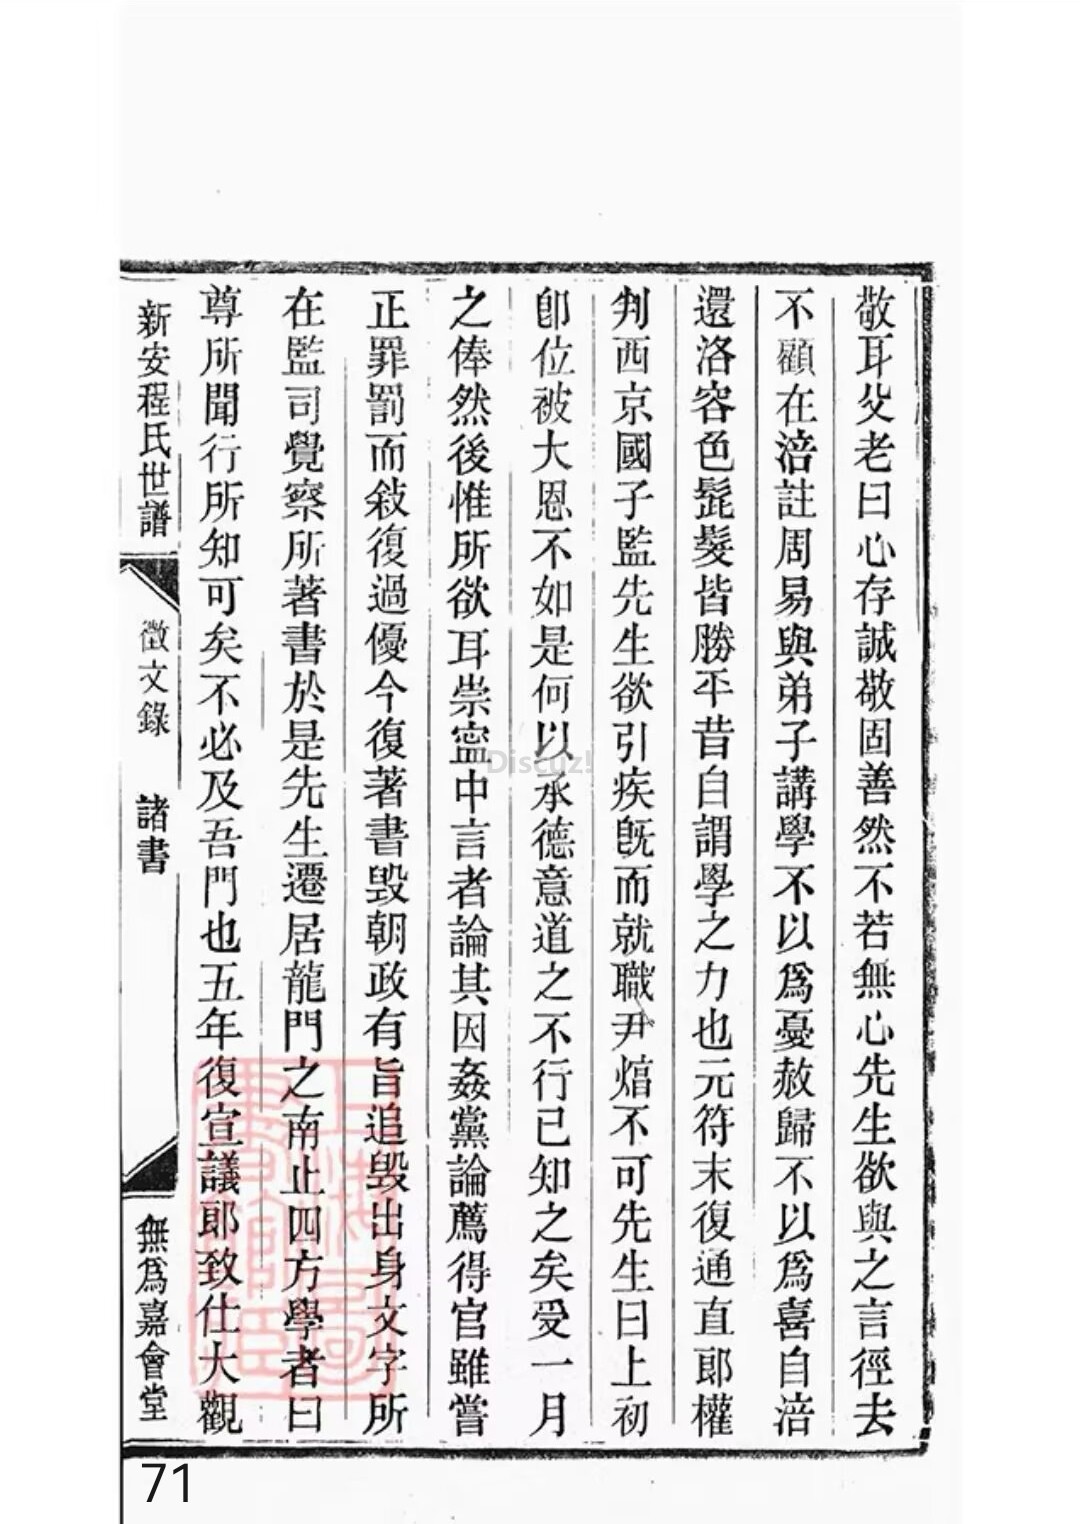 敬耳父老曰心存誠敬固善然不若無心先生欲與之言徑去
不顧在涪註周易與弟子講學不以爲憂赦歸不以爲喜自涪
還洛容色髭髮皆勝平昔自謂學之力也元符末復通直郎權
判西京國子監先生欲引疾旣而就職尹焞不可先生曰上初
卽位被大恩不如是何以承德意道之不行已知之矣受一月
之俸然後惟所欲耳崇寍中言者論其因姦黨論薦得官雖嘗
正罪罰而敍復過優今復著書毀朝政有旨追毀出身文字所
在監司覺察所著書於是先生遷居龍門之南止四方學者曰
尊所聞行所知可矣不必及吾門也五年復宣議郎致仕大觀
新安程氏世譜
徵文錄
諸書
無爲嘉會堂
Discuz!
71